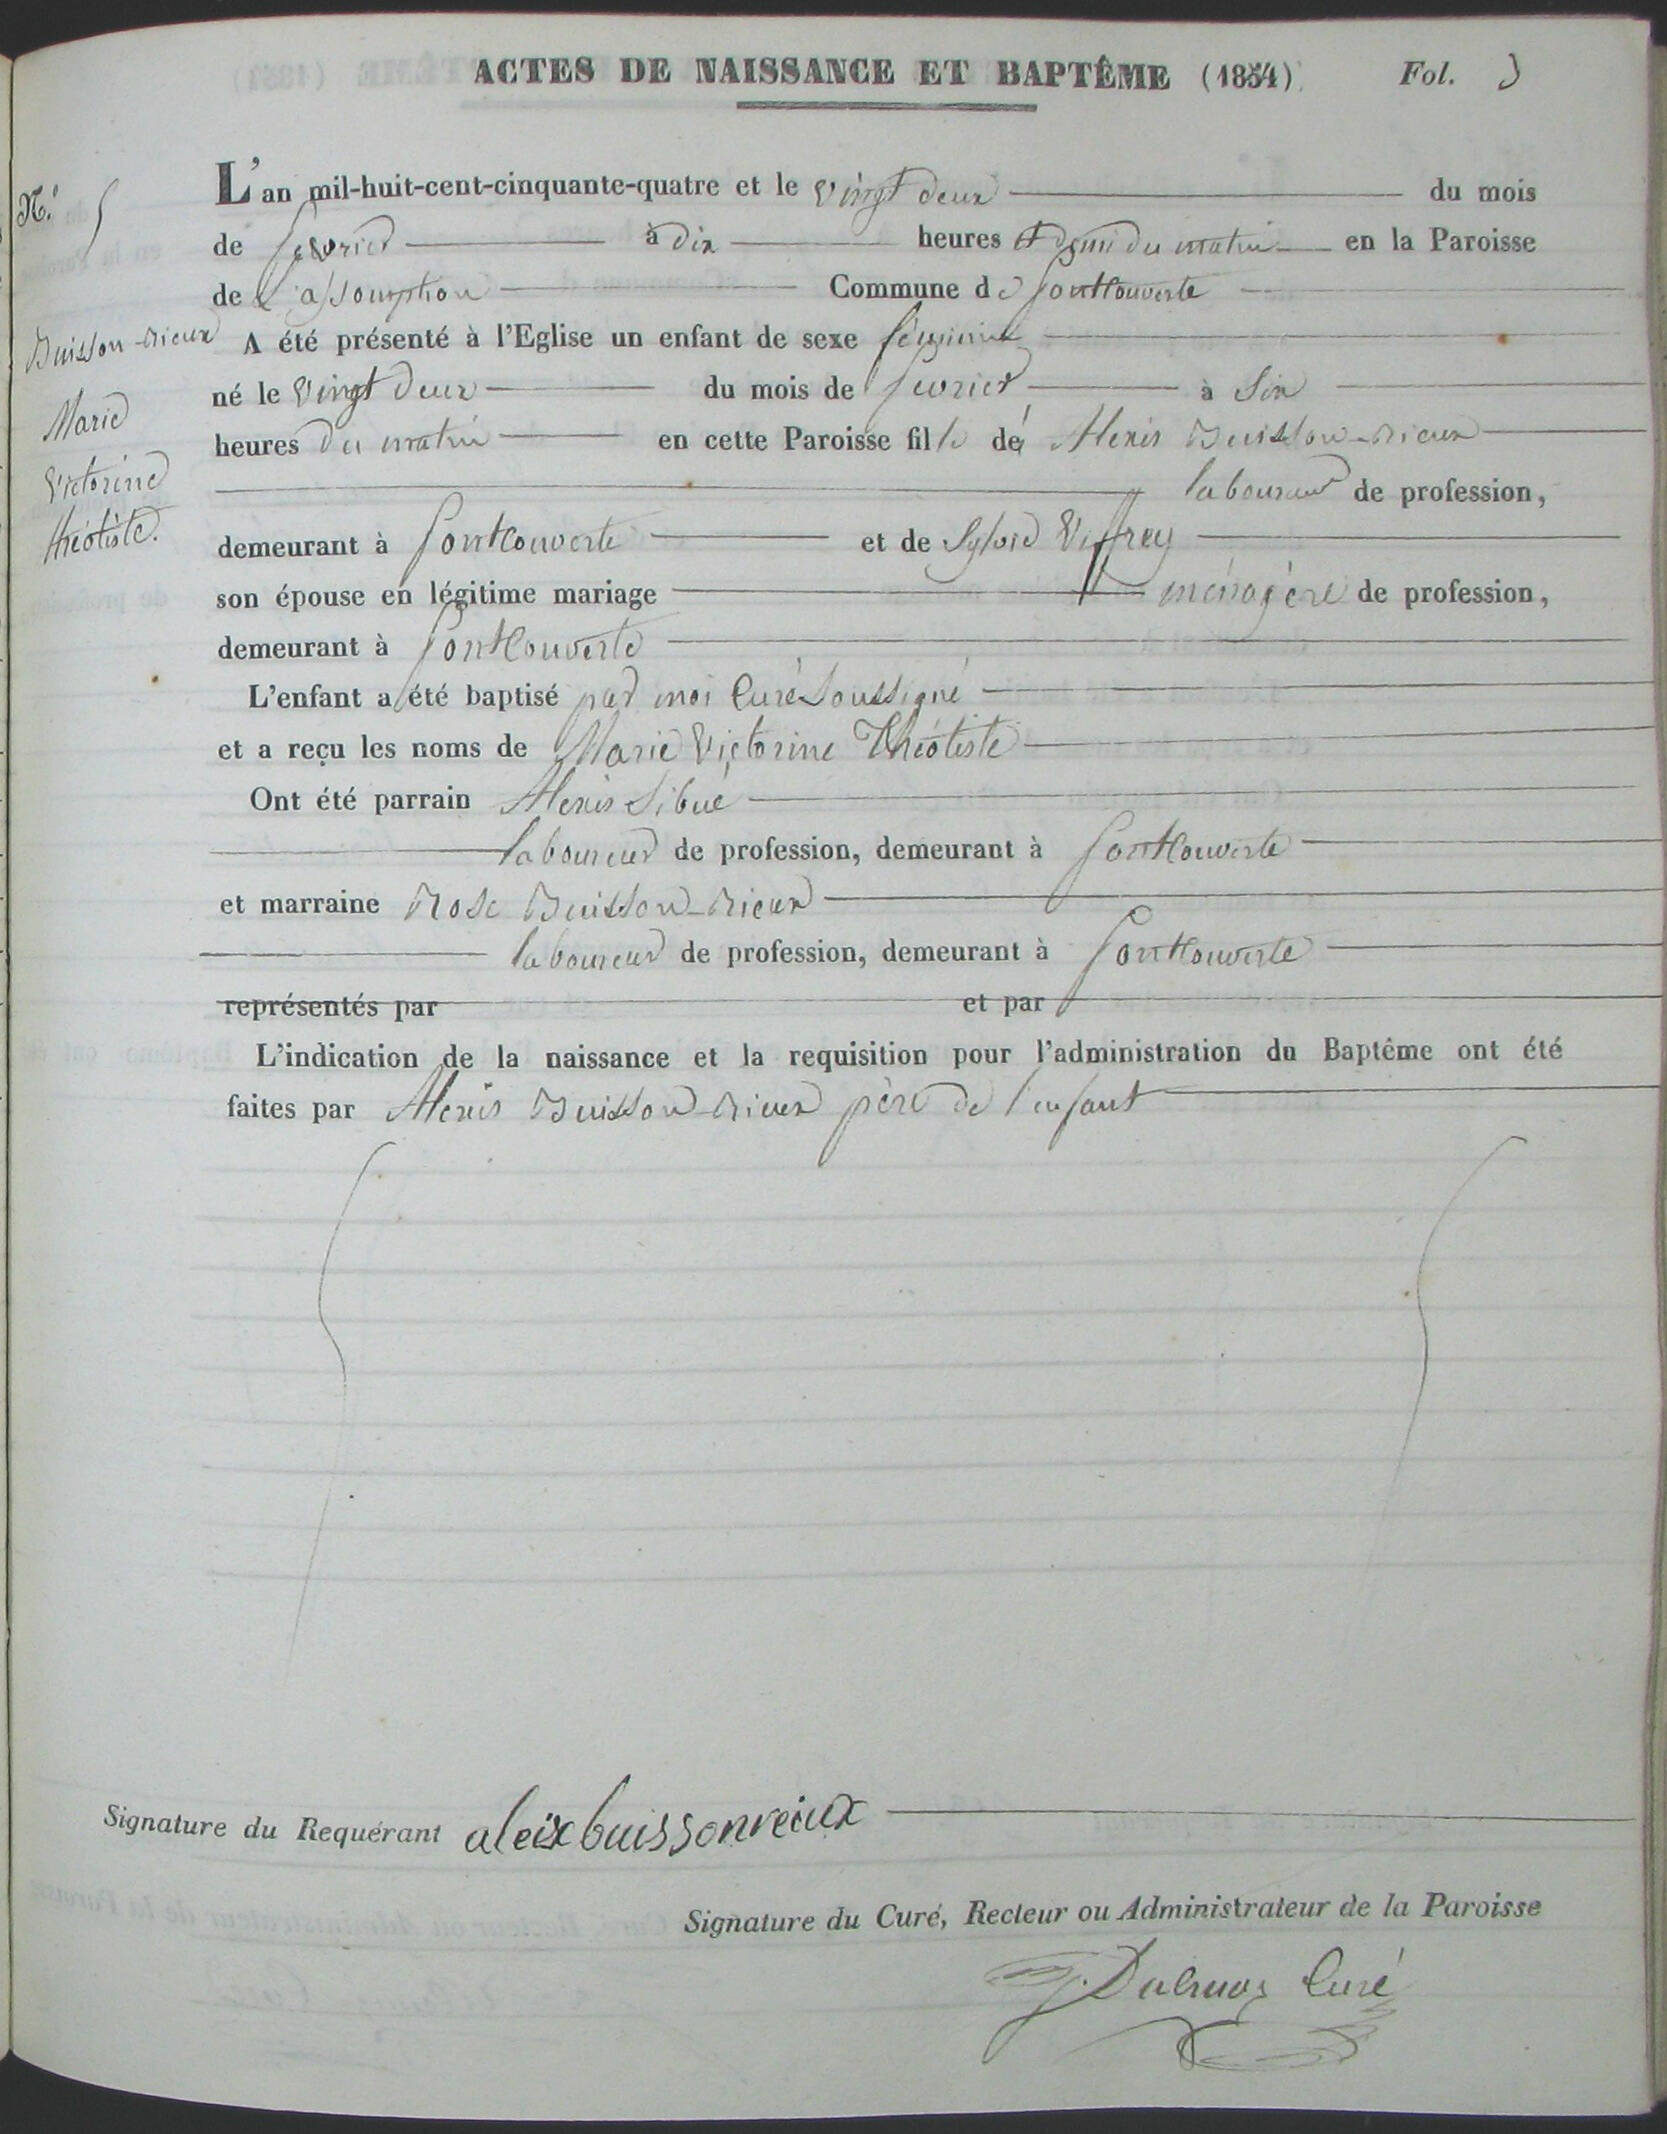 ACTES DE NAISSANCE ET BAPTÊME (1854) Fol. 3
N.º 5
L'an mil-huit-cent-cinquante-quatre et le vingt deux du mois
de fevrier à dix heures et demi du matin en la Paroisse
de L'assomption Commune de fontcouverte
Buisson-rieux
Marie
Victorine
théotiste.
A été présenté à l'Eglise un enfant de sexe féminin
né le vingt deux du mois de fevrier à six
heures du matin en cette Paroisse fille de Alexis Buisson-rieux
laboureur de profession,
demeurant à fontcouverte et de Sylvie Viffrey
son épouse en légitime mariage ménagère de profession,
demeurant à fontcouverte
L'enfant a été baptisé par moi Curé soussigné
et a reçu les noms de Marie Victorine Théotiste
Ont été parrain Alexis Sibué
laboureur de profession, demeurant à fontcouverte
et marraine Rose Buisson-rieux
laboureur de profession, demeurant à fontcouverte
représentés par et par
L'indication de la naissance et la requisition pour l'administration du Baptême ont été
faites par Alexis Buisson-rieux père de l'enfant
Signature du Requérant aleix buissonreiux
Signature du Curé, Recteur ou Administrateur de la Paroisse
Curé